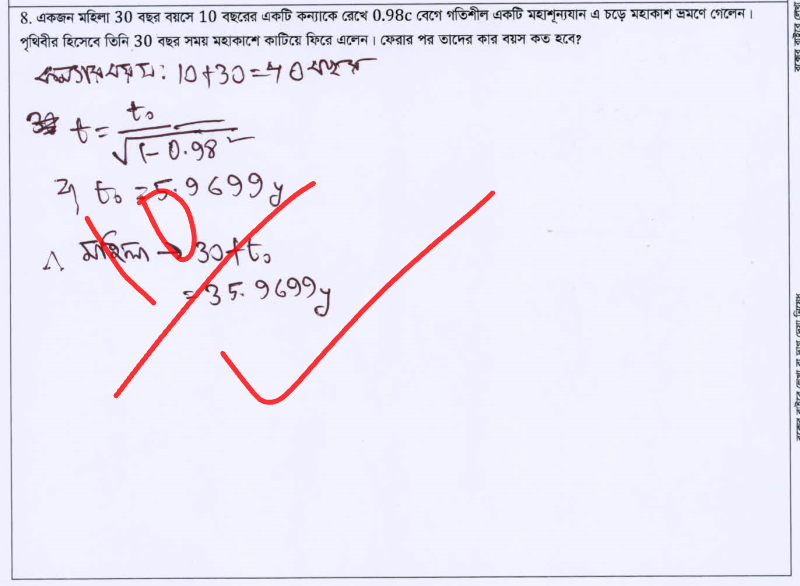 8. একজন মহিলা 30 বছর বয়সে 10 বছরের একটি কন্যাকে রেখে 0.98c বেগে গতিশীল একটি মহাশূন্যযান এ চড়ে মহাকাশ ভ্রমণে গেলেন।
পৃথিবীর হিসেবে তিনি 30 বছর সময় মহাকাশে কাটিয়ে ফিরে এলেন। ফেরার পর তাদের কার বয়স কত হবে?
কন্যার বয়স: 10+30=40 বছর
t = t₀/√(1-0.98²)
⇒ t₀ = 5.9699y
∴ মহিলা → 30+t₀
= 35.9699y